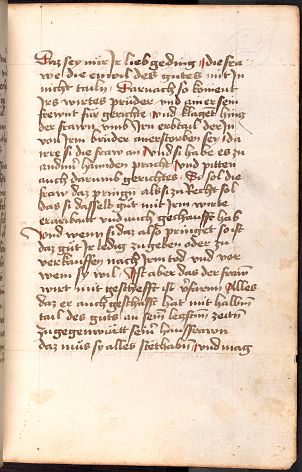 Daz sey nur Ir lieb geding die fra
we die en wil des gutes mit in
nicht tailn Darnach so koment
Irs wirtes prüder und ainer sein
freunt für gerichte und klaget hincz
der frawn umb Irn erbtail der In
von Irm bruder anerstorben sey da
irre si die fraw an und si habe es zu
andern hannden pracht und pitten
auch darumb gerichtes So sol die
fraw daz pringen als si zu Recht sol
das si dasselb gut mit Irm wirte
erarbait und auch gechaufft hab
Und wenn si daz also pringet so ist
daz gut Ir ledig zu geben oder zu
verkauffen nach Irem tod und vor
wem sy wil Ist aber das der fraw
wirt mit geschefft ist Alles
daz er auch geschafft hat mit hallbem
tail des guts an seiner leczsten zeiten
zu gegenwurtt seiner hausfrawn
daz mus so alles stet haben und mag